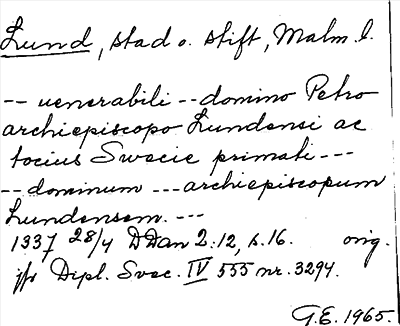 Lund, stad o. stift, Malm. l.
-- venerabili -- domino Petro
archiepiscopo Lundensi ac
tocius Swecie primati ---
-- dominum --- archiepiscopum
Lundensem. ---
1337 28/4 DDan 2:12, s.16. orig.
jfr Dipl. Svec. IV 555 nr. 3294.
G.E. 1965.